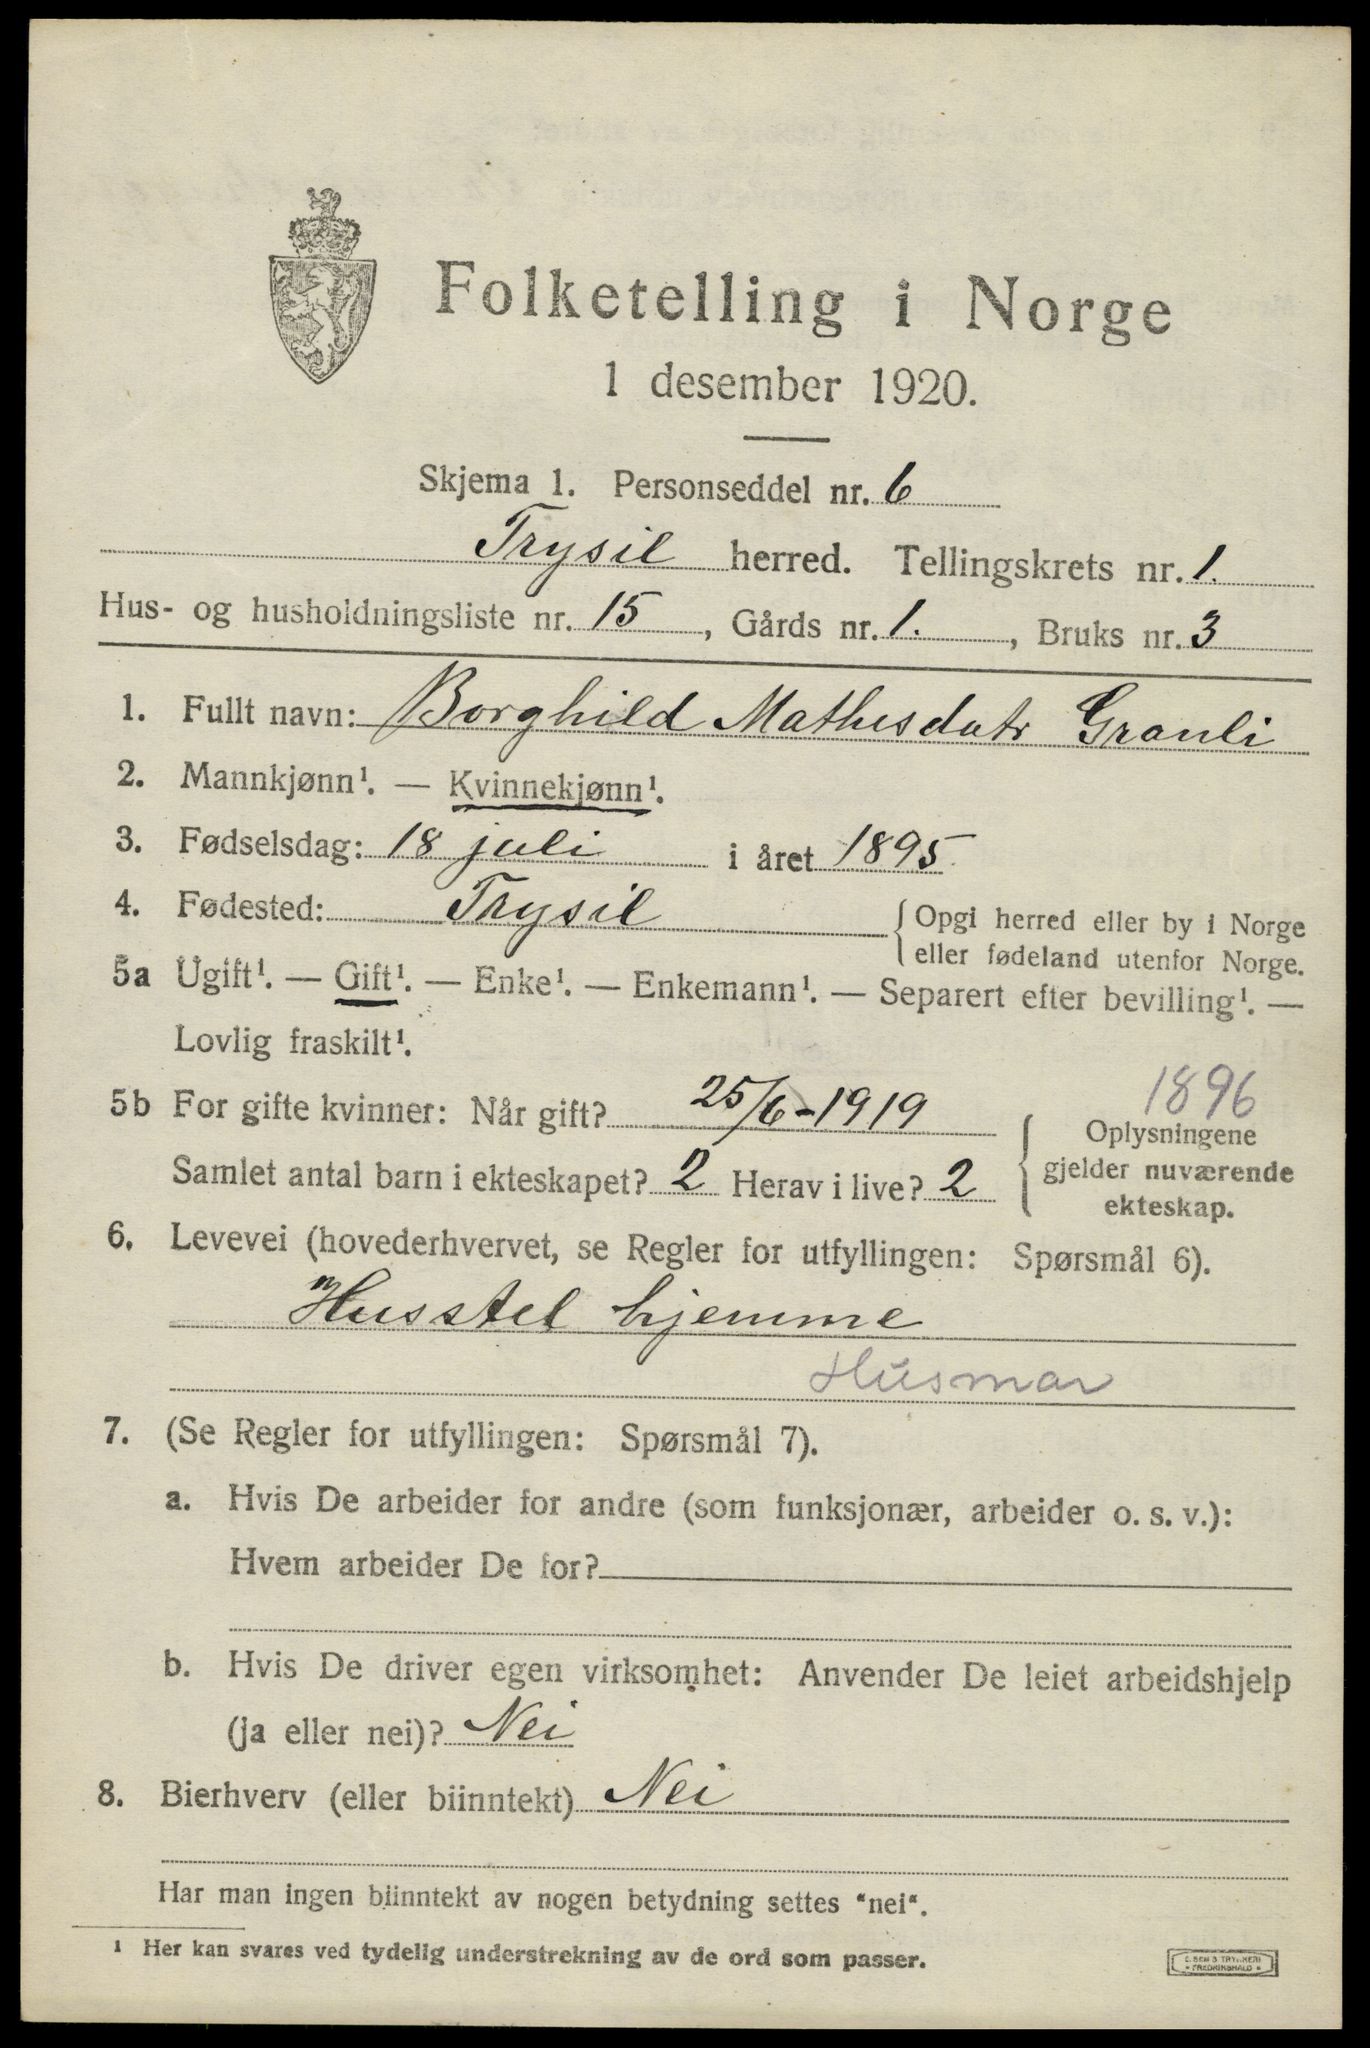 Folketelling i Norge
1 desember 1920.
Skjema 1. Personseddel nr. 6
Trysil herred. Tellingskrets nr. 1.
Hus- og husholdningsliste nr. 15, Gårds nr. 1., Bruks nr. 3
1. Fullt navn: Borghild Mathisdatr Granli
2. Mannkjønn¹. — Kvinnekjønn¹.
3. Fødselsdag: 18 juli i året 1895.
4. Fødested: Trysil { Opgi herred eller by i Norge
eller fødeland utenfor Norge.
5a Ugift¹. — Gift¹. — Enke¹. — Enkemann¹. — Separert efter bevilling¹. —
Lovlig fraskilt¹.
1896
5b For gifte kvinner: Når gift? 25/6-1919 { Oplysningene
Samlet antal barn i ekteskapet? 2 Herav i live? 2 gjelder nuværende
ekteskap.
6. Levevei (hovederhvervet, se Regler for utfyllingen: Spørsmål 6).
Husstel hjemme
Husmor
7. (Se Regler for utfyllingen: Spørsmål 7).
a. Hvis De arbeider for andre (som funksjonær, arbeider o. s. v.):
Hvem arbeider De for?
b. Hvis De driver egen virksomhet: Anvender De leiet arbeidshjelp
(ja eller nei)? Nei
8. Bierhverv (eller biinntekt) Nei
Har man ingen biinntekt av nogen betydning settes "nei".
¹ Her kan svares ved tydelig understrekning av de ord som passer.
FREDRIKSHALD